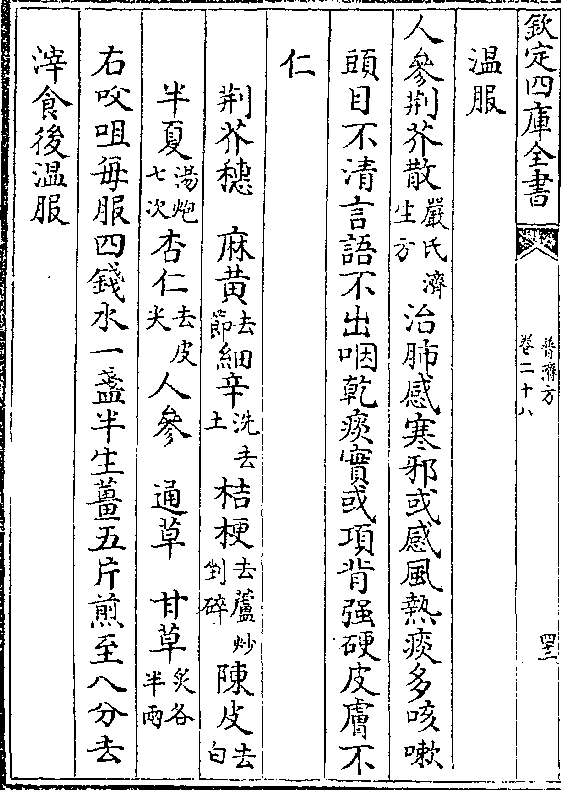 欽定四庫全書
普濟方
卷二十八
四三
溫服
人參荆芥散嚴氏濟生方治肺感寒邪或感風熱痰多咳嗽
頭目不清言語不出咽乾痰實或項背强硬皮膚不
仁
荆芥穗 麻黄去節細辛洗去土 桔梗去蘆炒剉碎陳皮去白
半夏湯炮七次杏仁去皮尖人參 通草 甘草炙各半兩
右㕮咀每服四錢水一盞半生薑五片煎至八分去
滓食後溫服